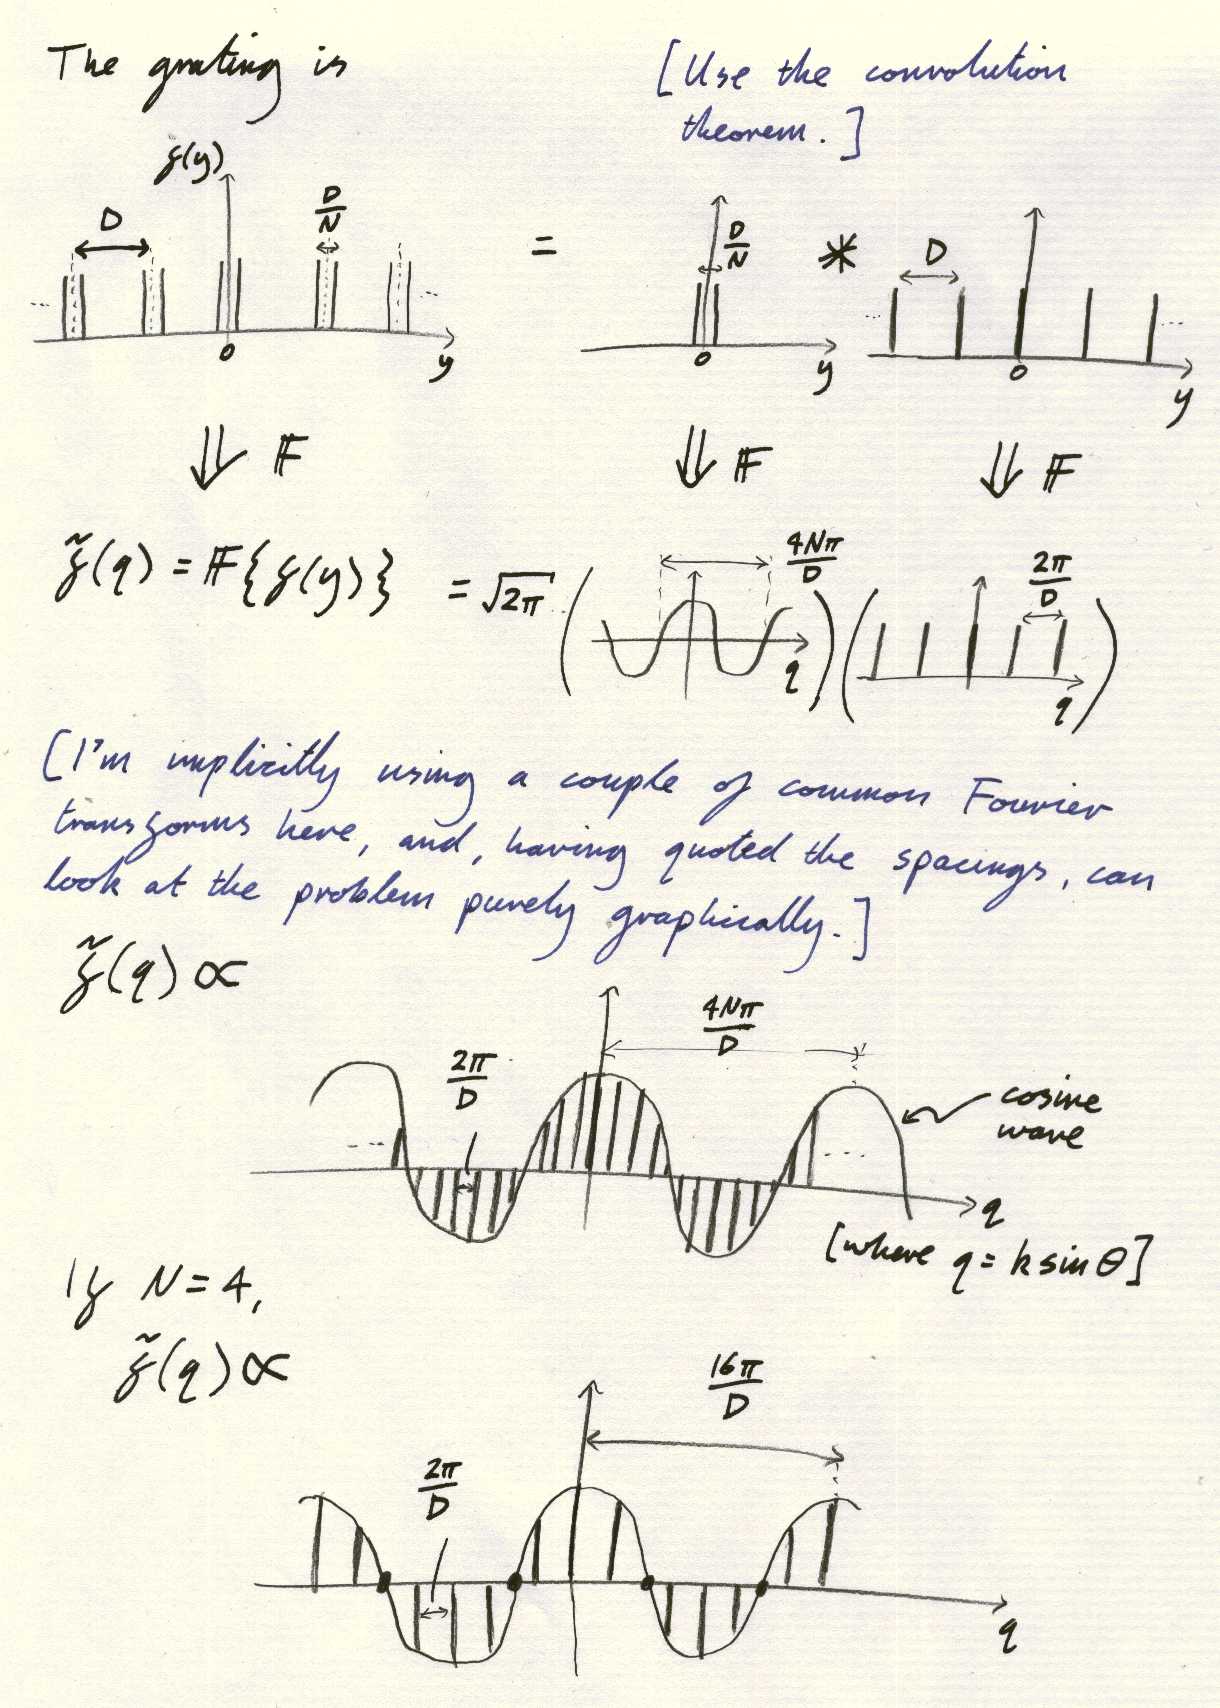 The grating is
[Use the convolution
theorem.]
f(y)
D
D/N
0
y
=
D/N
0
y
*
D
0
y
⇓ 𝔽
⇓ 𝔽
⇓ 𝔽
f̃(q) = 𝔽{f(y)} = √2π ( 4Nπ/D q ) ( 2π/D q )
[I'm implicitly using a couple of common Fourier
transforms here, and, having quoted the spacings, can
look at the problem purely graphically.]
f̃(q) ∝
2π/D
4Nπ/D
cosine
wave
q
[where q = k sin θ]
If N = 4,
f̃(q) ∝
2π/D
16π/D
q